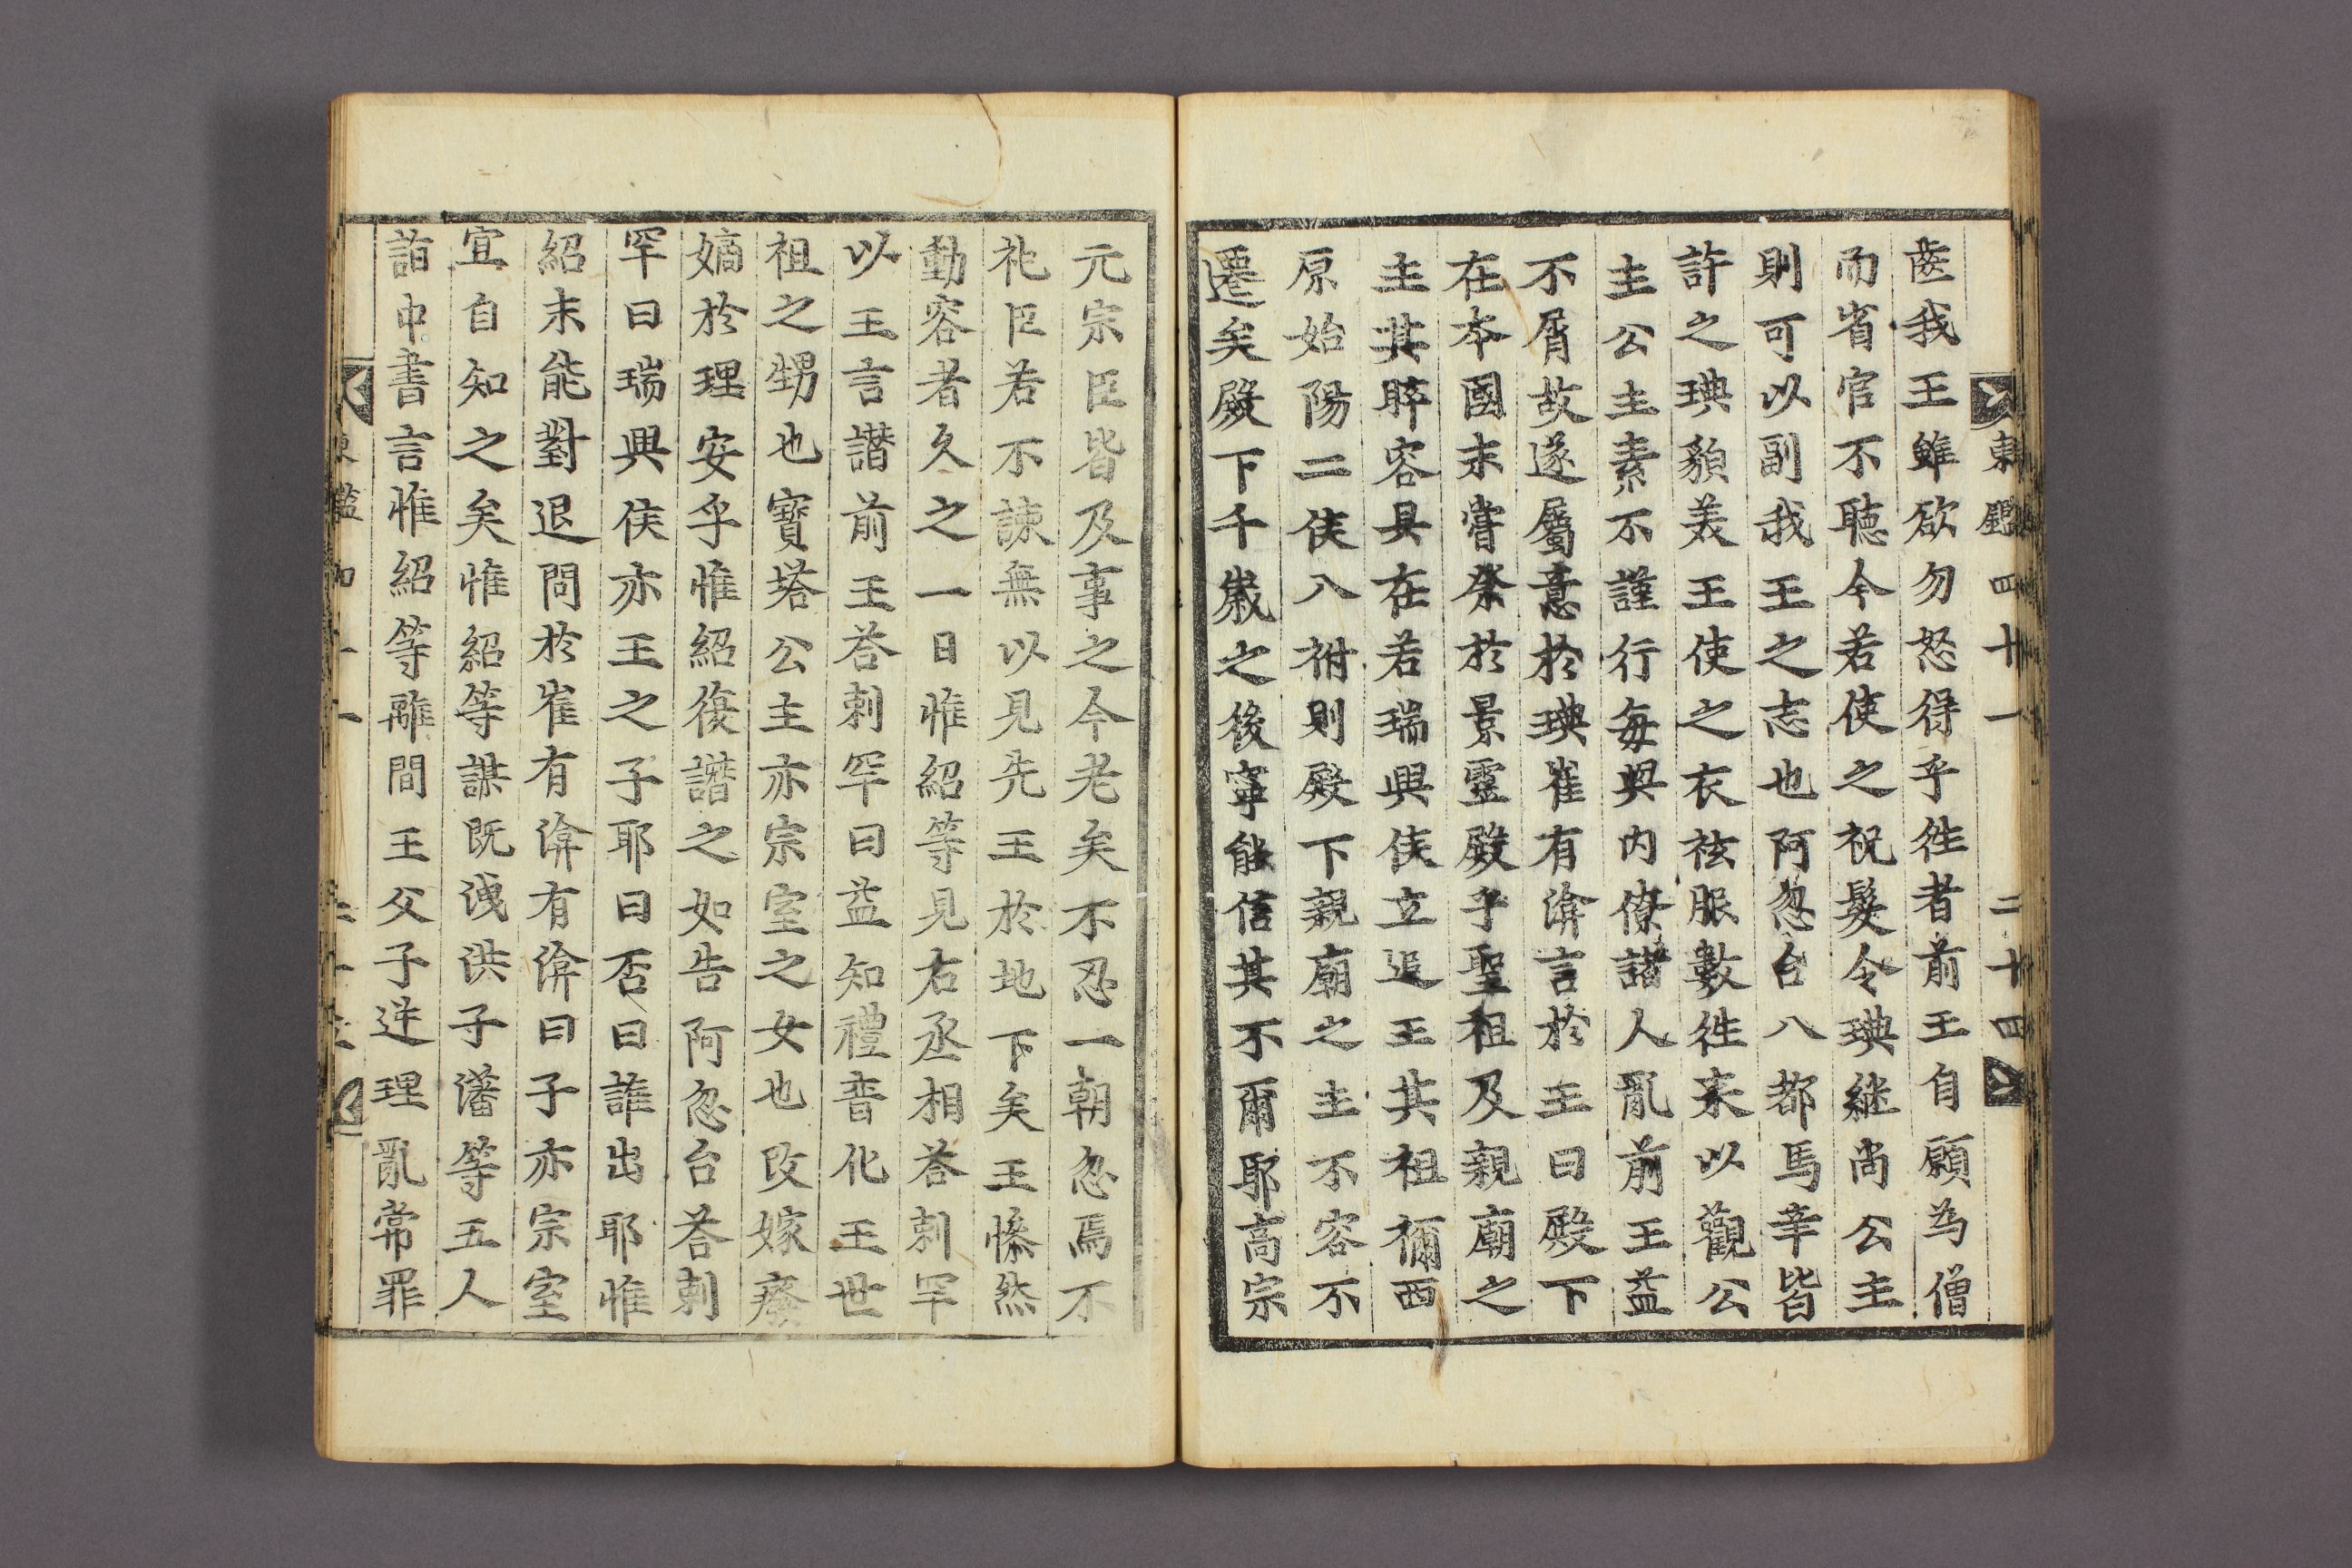 東鑑四十一 二十四
齒我王雖欲勿怒得乎徃者前王自願為僧
而省官不聽今若使之祝髮令琠継尚公主
則可以副我王之志也阿忽台八都馬辛皆
許之琠貌美王使之衣袨服數徃来以觀公
主公主素不謹行每與内僚諸人亂前王益
不屑故遂屬意於琠崔有渰言於王曰殿下
在本國未嘗祭於景靈殿乎聖祖及親廟之
主其睟容具在若瑞興侯立追王其祖禰西
原始陽二侯入祔則殿下親廟之主不容不
遷矣殿下千歳之後寧能信其不爾耶高宗
元宗臣皆及事之今老矣不忍一朝忽焉不
礼臣若不諌無以見先王於地下矣王慘然
動容者久之一日惟紹等見右丞相荅剌罕
以王言譖前王荅剌罕曰益知禮普化王世
祖之甥也寳塔公主亦宗室之女也改嫁廢
嫡於理安乎惟紹復譖之如告阿忽台荅剌
罕曰瑞興侯亦王之子耶曰否曰誰出耶惟
紹未能對退問於崔有渰有渰曰子亦宗室
宜自知之矣惟紹等謀既洩洪子藩等五人
詣中書言惟紹等離間王父子逆理亂常罪